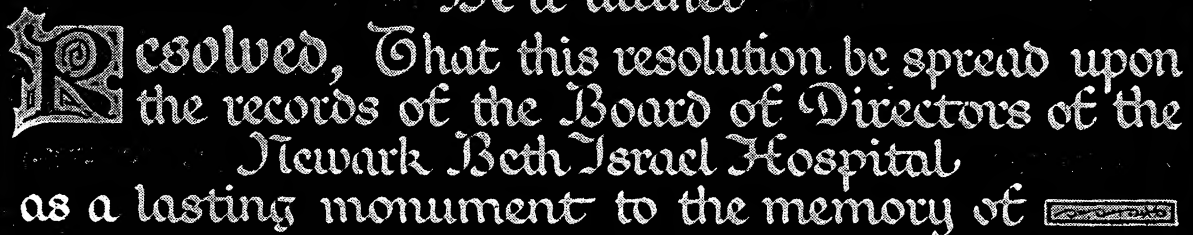 Resolved, That this resolution be spread upon
the records of the Board of Directors of the
Newark Beth Israel Hospital
as a lasting monument to the memory of